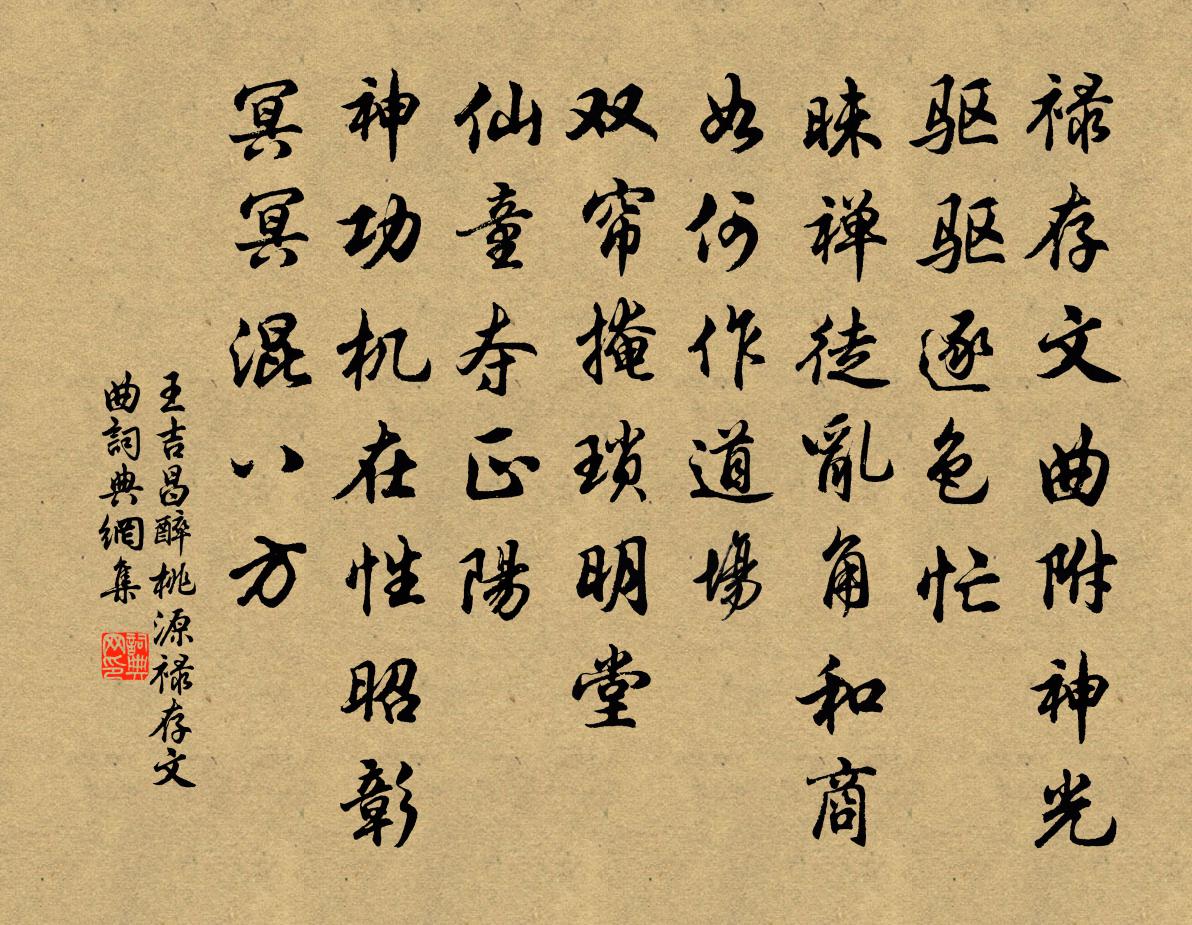 禄存文曲附神光
驱驱逐色忙
昧禅徒亂角和商
如何作道場
双帘掩瑣明堂
仙童夺正陽
神功机在性昭彰
冥冥混八方
王吉昌醉桃源禄存文
曲詞典網集
詞典
网印